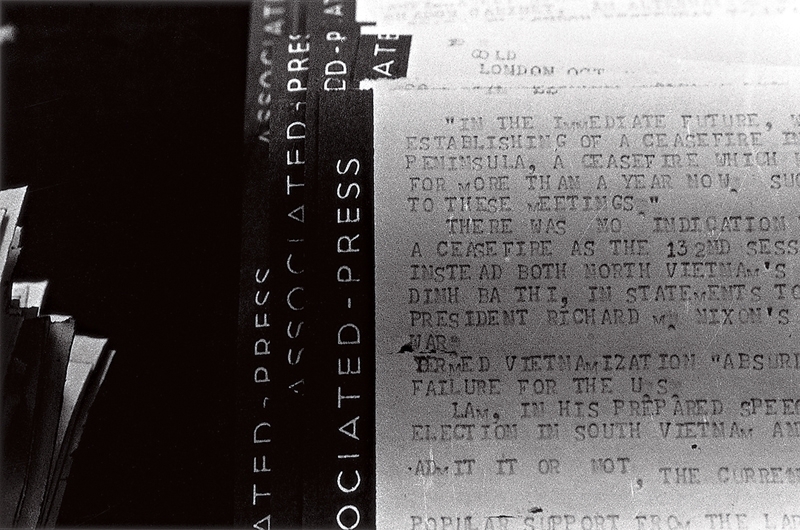 ASSOCIAT
ASSOCIATED-PRES
DD-P A
ATE
ATED-PRESS
OCIATED-PRESS
GOLD
LONDON OCT
"IN THE IMMEDIATE FUTURE, W
ESTABLISHING OF A CEASEFIRE IN
PENINSULA, A CEASEFIRE WHICH
FOR MORE THAN A YEAR NOW. SUC
TO THESE MEETINGS."
THERE WAS NO INDICATION
A CEASEFIRE AS THE 132ND SESS
INSTEAD BOTH NORTH VIETNAM'S
DINH BA THI, IN STATEMENTS TO
PRESIDENT RICHARD M. NIXON'S
WAR.
TERMED VIETNAMIZATION "ABSURD
FAILURE FOR THE U.S.
LAM, IN HIS PREPARED SPEEC
ELECTION IN SOUTH VIETNAM AN
ADMIT IT OR NOT, THE CURREN
POPULAR SUPPORT FROM THE LAR